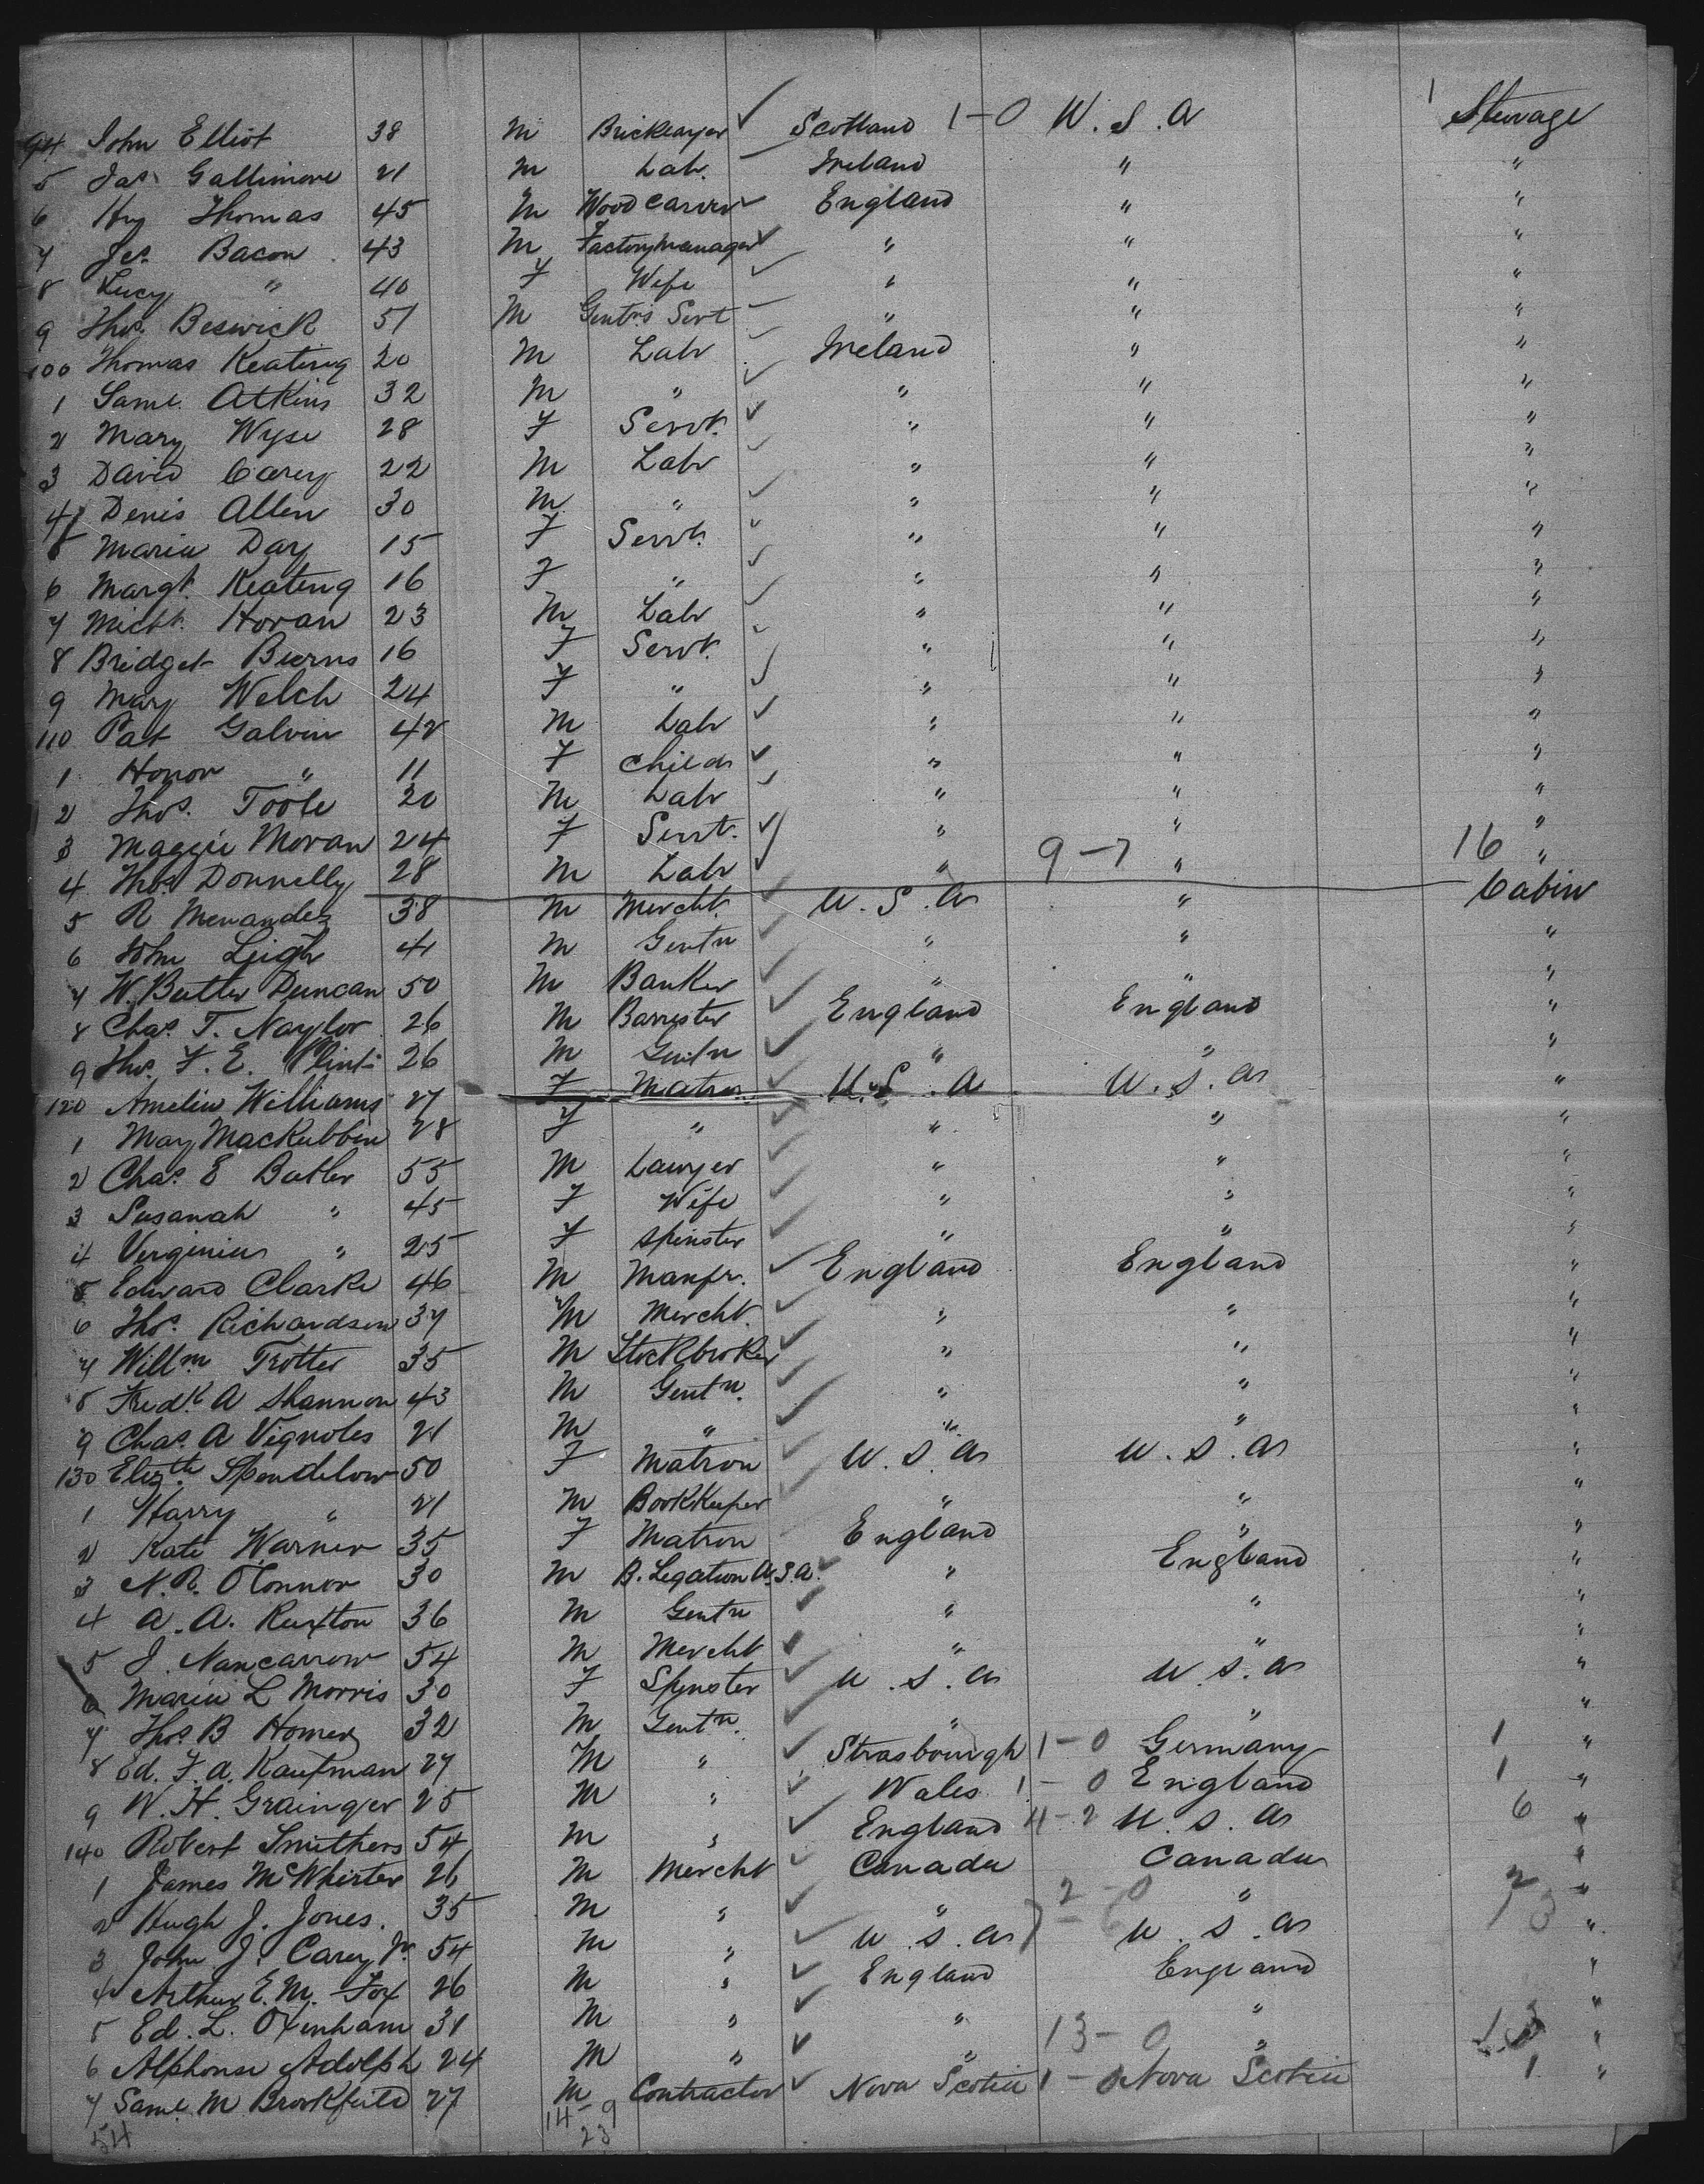 94 John Elliot 38 M Bricklayer Scotland 1-0 U.S.A 1 Steerage
5 Jas Gallimore 21 M Labr. Ireland " "
6 Hy Thomas 45 M Wood Carver England " "
7 Jes. Bacon 43 M Factory manager " " "
8 Lucy " 40 F Wife " " "
9 Thos. Beswick 51 M Gentns Servt " " "
100 Thomas Keating 20 M Labr Ireland " "
1 Saml. Atkins 32 M " " " "
2 Mary Wyse 28 F Servt. " " "
3 David Carey 22 M Labr " " "
4 Denis Allen 30 M " " " "
5 Maria Day 15 F Servt. " " "
6 Margt. Keating 16 F " " " "
7 Michl. Horan 23 M Labr " " "
8 Bridget Burns 16 F Servt. " " "
9 Mary Welch 24 F " " " "
110 Pat Galvin 42 M Labr " " "
1 Honor " 11 F Child " " "
2 Thos. Toole 20 M Labr " " "
3 Maggie Moran 24 F Servt. " " "
4 Thos. Donnelly 28 M Labr " 9-7 " 16 "
5 R Menandez 38 M Mercht. U.S.A " Cabin
6 John Leigh 41 M Gentn " " "
7 W. Butler Duncan 50 M Banker " " "
8 Chas. T. Naylor 26 M Barrester England England "
9 Thos. F. E. 26 M Gentn " " "
120 Amelia Williams 27 F Matron U.S.A U.S.A "
1 May MacKubbin 28 F " " " "
2 Chas. E Butler 55 M Lawyer " " "
3 Susanah " 45 F Wife " " "
4 Verginia " 25 F Spinster " " "
5 Edward Clarke 46 M Manfr. England England "
6 Thos. Richardson 37 M Mercht. " " "
7 Willm Trotter 35 M Stockbroker " " "
8 Fredk A Shannon 43 M Gentn. " " "
9 Chas. A Vignoles 21 M " " " "
130 Elizth Spendelow 50 F Matron U.S.A U.S.A "
1 Harry " 21 M BookKeeper " " "
2 Kate Warner 35 F Matron England " "
3 N. R. O'Connor 30 M B. Legation U.S.A. " England "
4 A. A. Ruxton 36 M Gentn " " "
5 J. Nancarrow 54 M Mercht " " "
6 Maria L Morris 30 F Spinster U.S.A U.S.A "
7 Thos. B Homer 32 M Gentn. " " "
8 Ed. F. A. Kaufman 27 M " Strasbourgh 1-0 Germany 1 "
9 W. H. Grainger 25 M " Wales 1-0 England 1 "
140 Robert Smithers 54 M " England 4-2 U.S.A 6 "
1 James McWhirter 26 M Mercht Canada Canada "
2 Hugh J. Jones. 35 M " " 2-0 " 2 "
3 John J. Carey Jr. 54 M " U.S.A 7-6 U.S.A 13 "
4 Arthur E. M. Fox 26 M " England England "
5 Ed. L. Oxenham 31 M " " " "
6 Alphonse Adolph 24 M " " 13-0 " 13 "
7 Saml. M Brookfield 27 M Contractor Nova Scotia 1-0 Nova Scotia 1 "
54 14-9
23